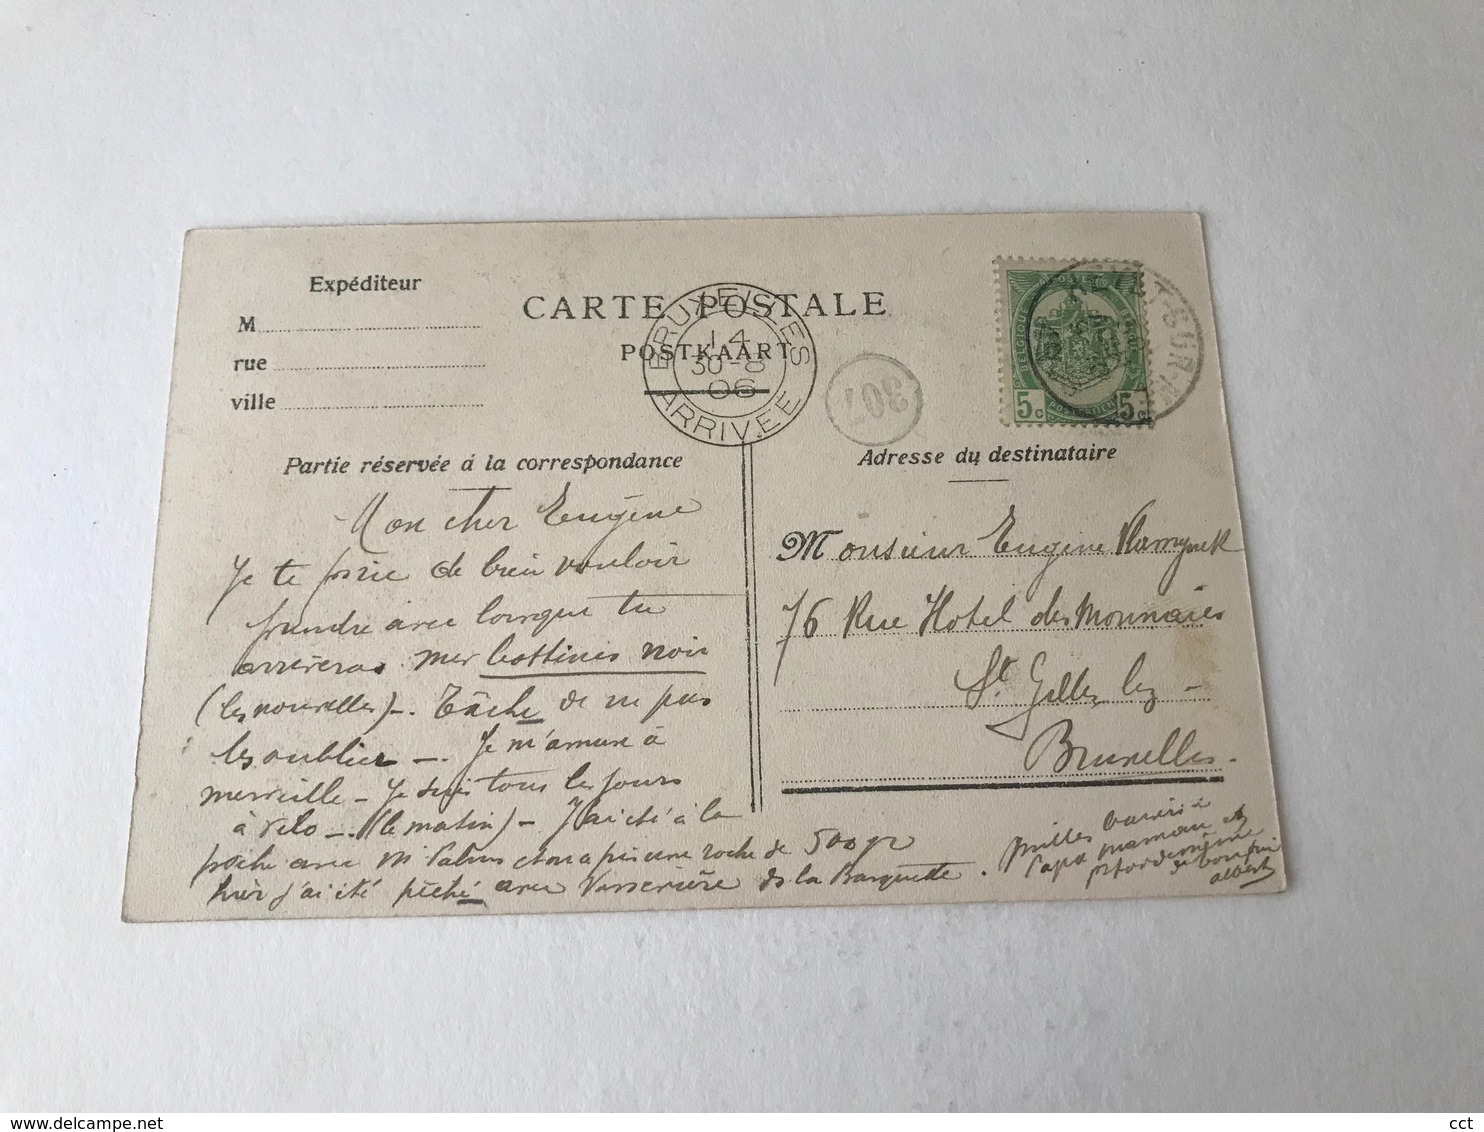 Expéditeur
M
rue
ville
CARTE POSTALE
POSTKAART
BRUXELLES
14
30-8
06
ARRIVÉE
307
BELGIQUE
5c 5c
Partie réservée à la correspondance
Mon cher Eugène
Je te prie de bien vouloir
prendre avec lorsque tu
arriveras mes bottines noir
(les nouvelles) -. Tâche de ne pas
les oublier -. Je m'amuse à
merveille - Je suis tous les jours
à vélo -. (le matin) - J'ai été à la
pêche avec Mr et on a pris une roche de 500 gr
hier j'ai été pêché avec de la Barquette.
milles baisers à
Papa maman et
de bon
albert
Adresse du destinataire
Monsieur Eugène Vlamynck
76 Rue Hotel des Monnaies
St Gilles lez -
Bruxelles.
cct